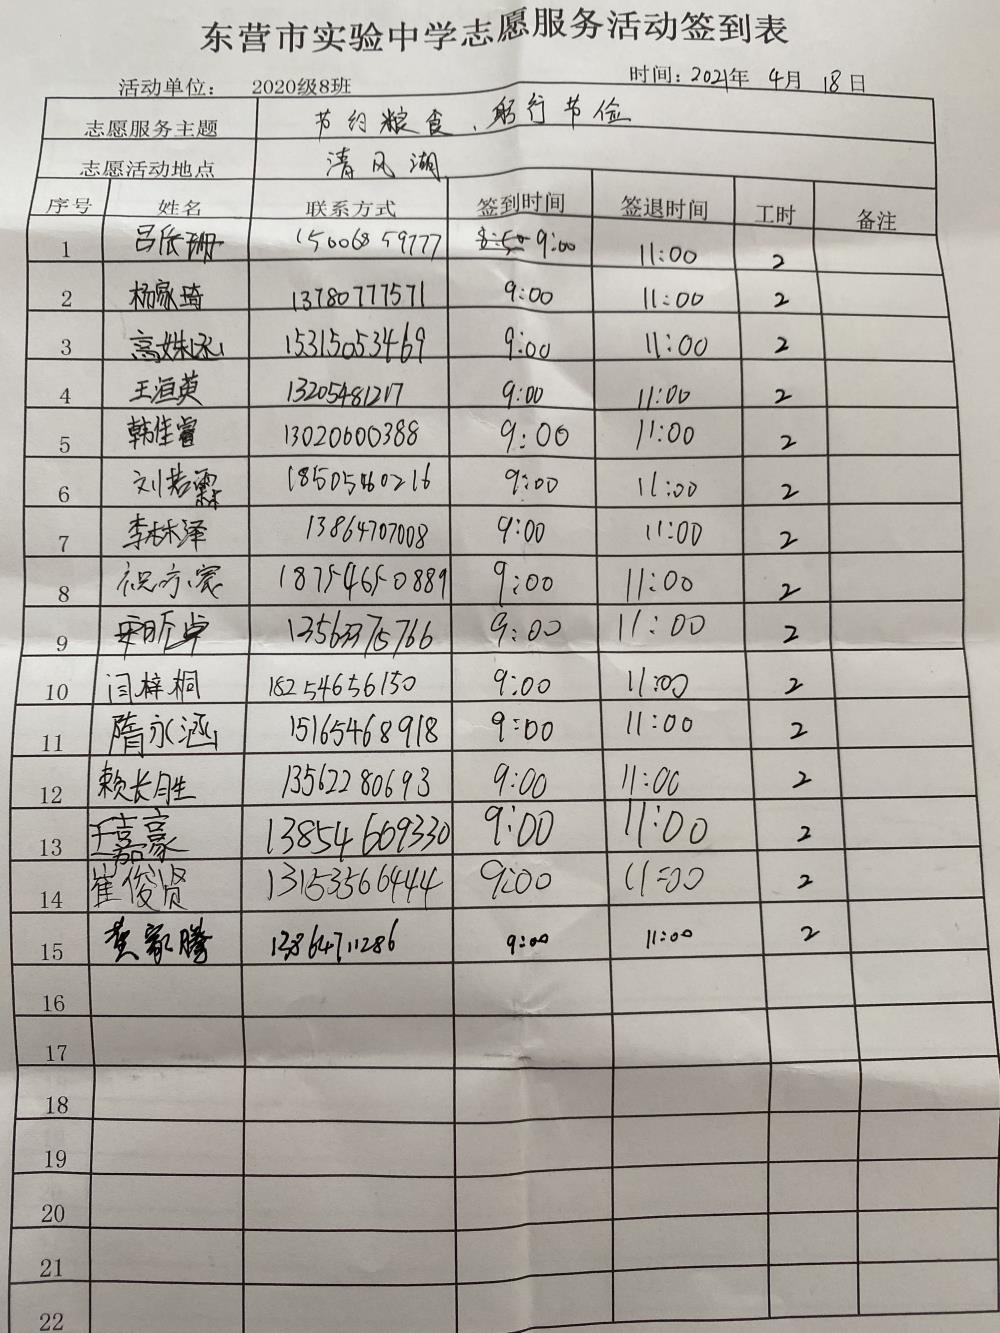 东营市实验中学志愿服务活动签到表
活动单位： 2020级8班 时间：2021年 4月 18日
志愿服务主题 节约粮食、躬行节俭
志愿活动地点 清风湖
序号 姓名 联系方式 签到时间 签退时间 工时 备注
1 吕 珊 15006859777 8:50 9:00 11:00 2
2 杨家琦 13780777571 9:00 11:00 2
3 高姝 15315053469 9:00 11:00 2
4 王洹英 13205481217 9:00 11:00 2
5 韩佳睿 13020600388 9:00 11:00 2
6 刘若霖 18505460216 9:00 11:00 2
7 李林泽 13864707008 9:00 11:00 2
8 祝 18754650889 9:00 11:00 2
9 卓 13563375766 9:00 11:00 2
10 闫梓桐 18254656150 9:00 11:00 2
11 隋永涵 15165468918 9:00 11:00 2
12 赖长胜 13562280693 9:00 11:00 2
13 王嘉豪 13854609330 9:00 11:00 2
14 崔俊贤 13153566444 9:00 11:00 2
15 家腾 13864711286 9:00 11:00 2
16
17
18
19
20
21
22